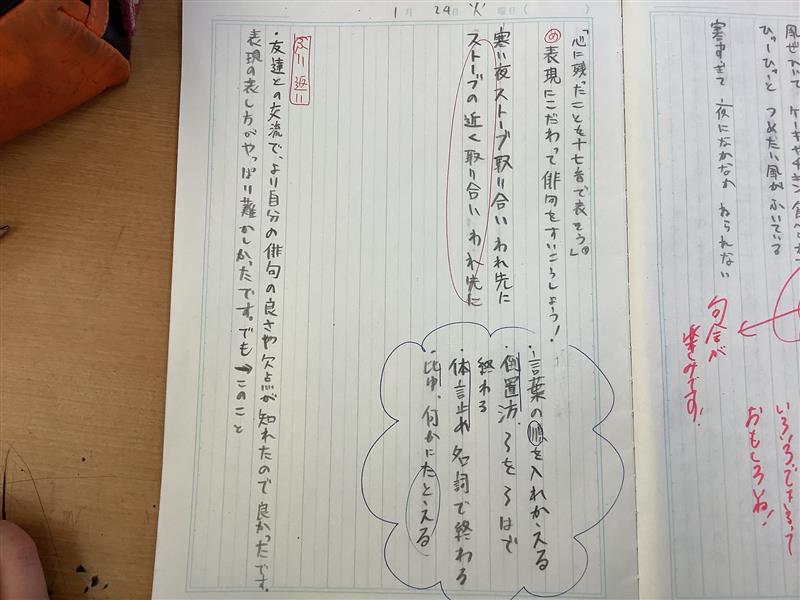 風がふいて ケーキやチキン 食べ
ひゅーひゅーと つめたい風がふいている
寒すぎて 夜になかなか ねられない
句会が
楽しみです!
いろいろできるって
おもしろいね!
1月 24日 火 曜日( )
「心に残ったことを十七音で表そう」
め 表現にこだわって俳句をすいこうしよう!
寒い夜ストーブ取り合い われ先に
ストーブの 近く取り合い われ先に
・言葉の順を入れかえる
・倒置法、ろを ろはで
終わる
・体言止め 名詞で終わる
・比ゆ、何かにたとえる
ふり返り
・友達との交流で、より自分の俳句の良さや欠点が知れたので良かったです。
表現の表し方がやっぱり難かしかったです。でも→このこと